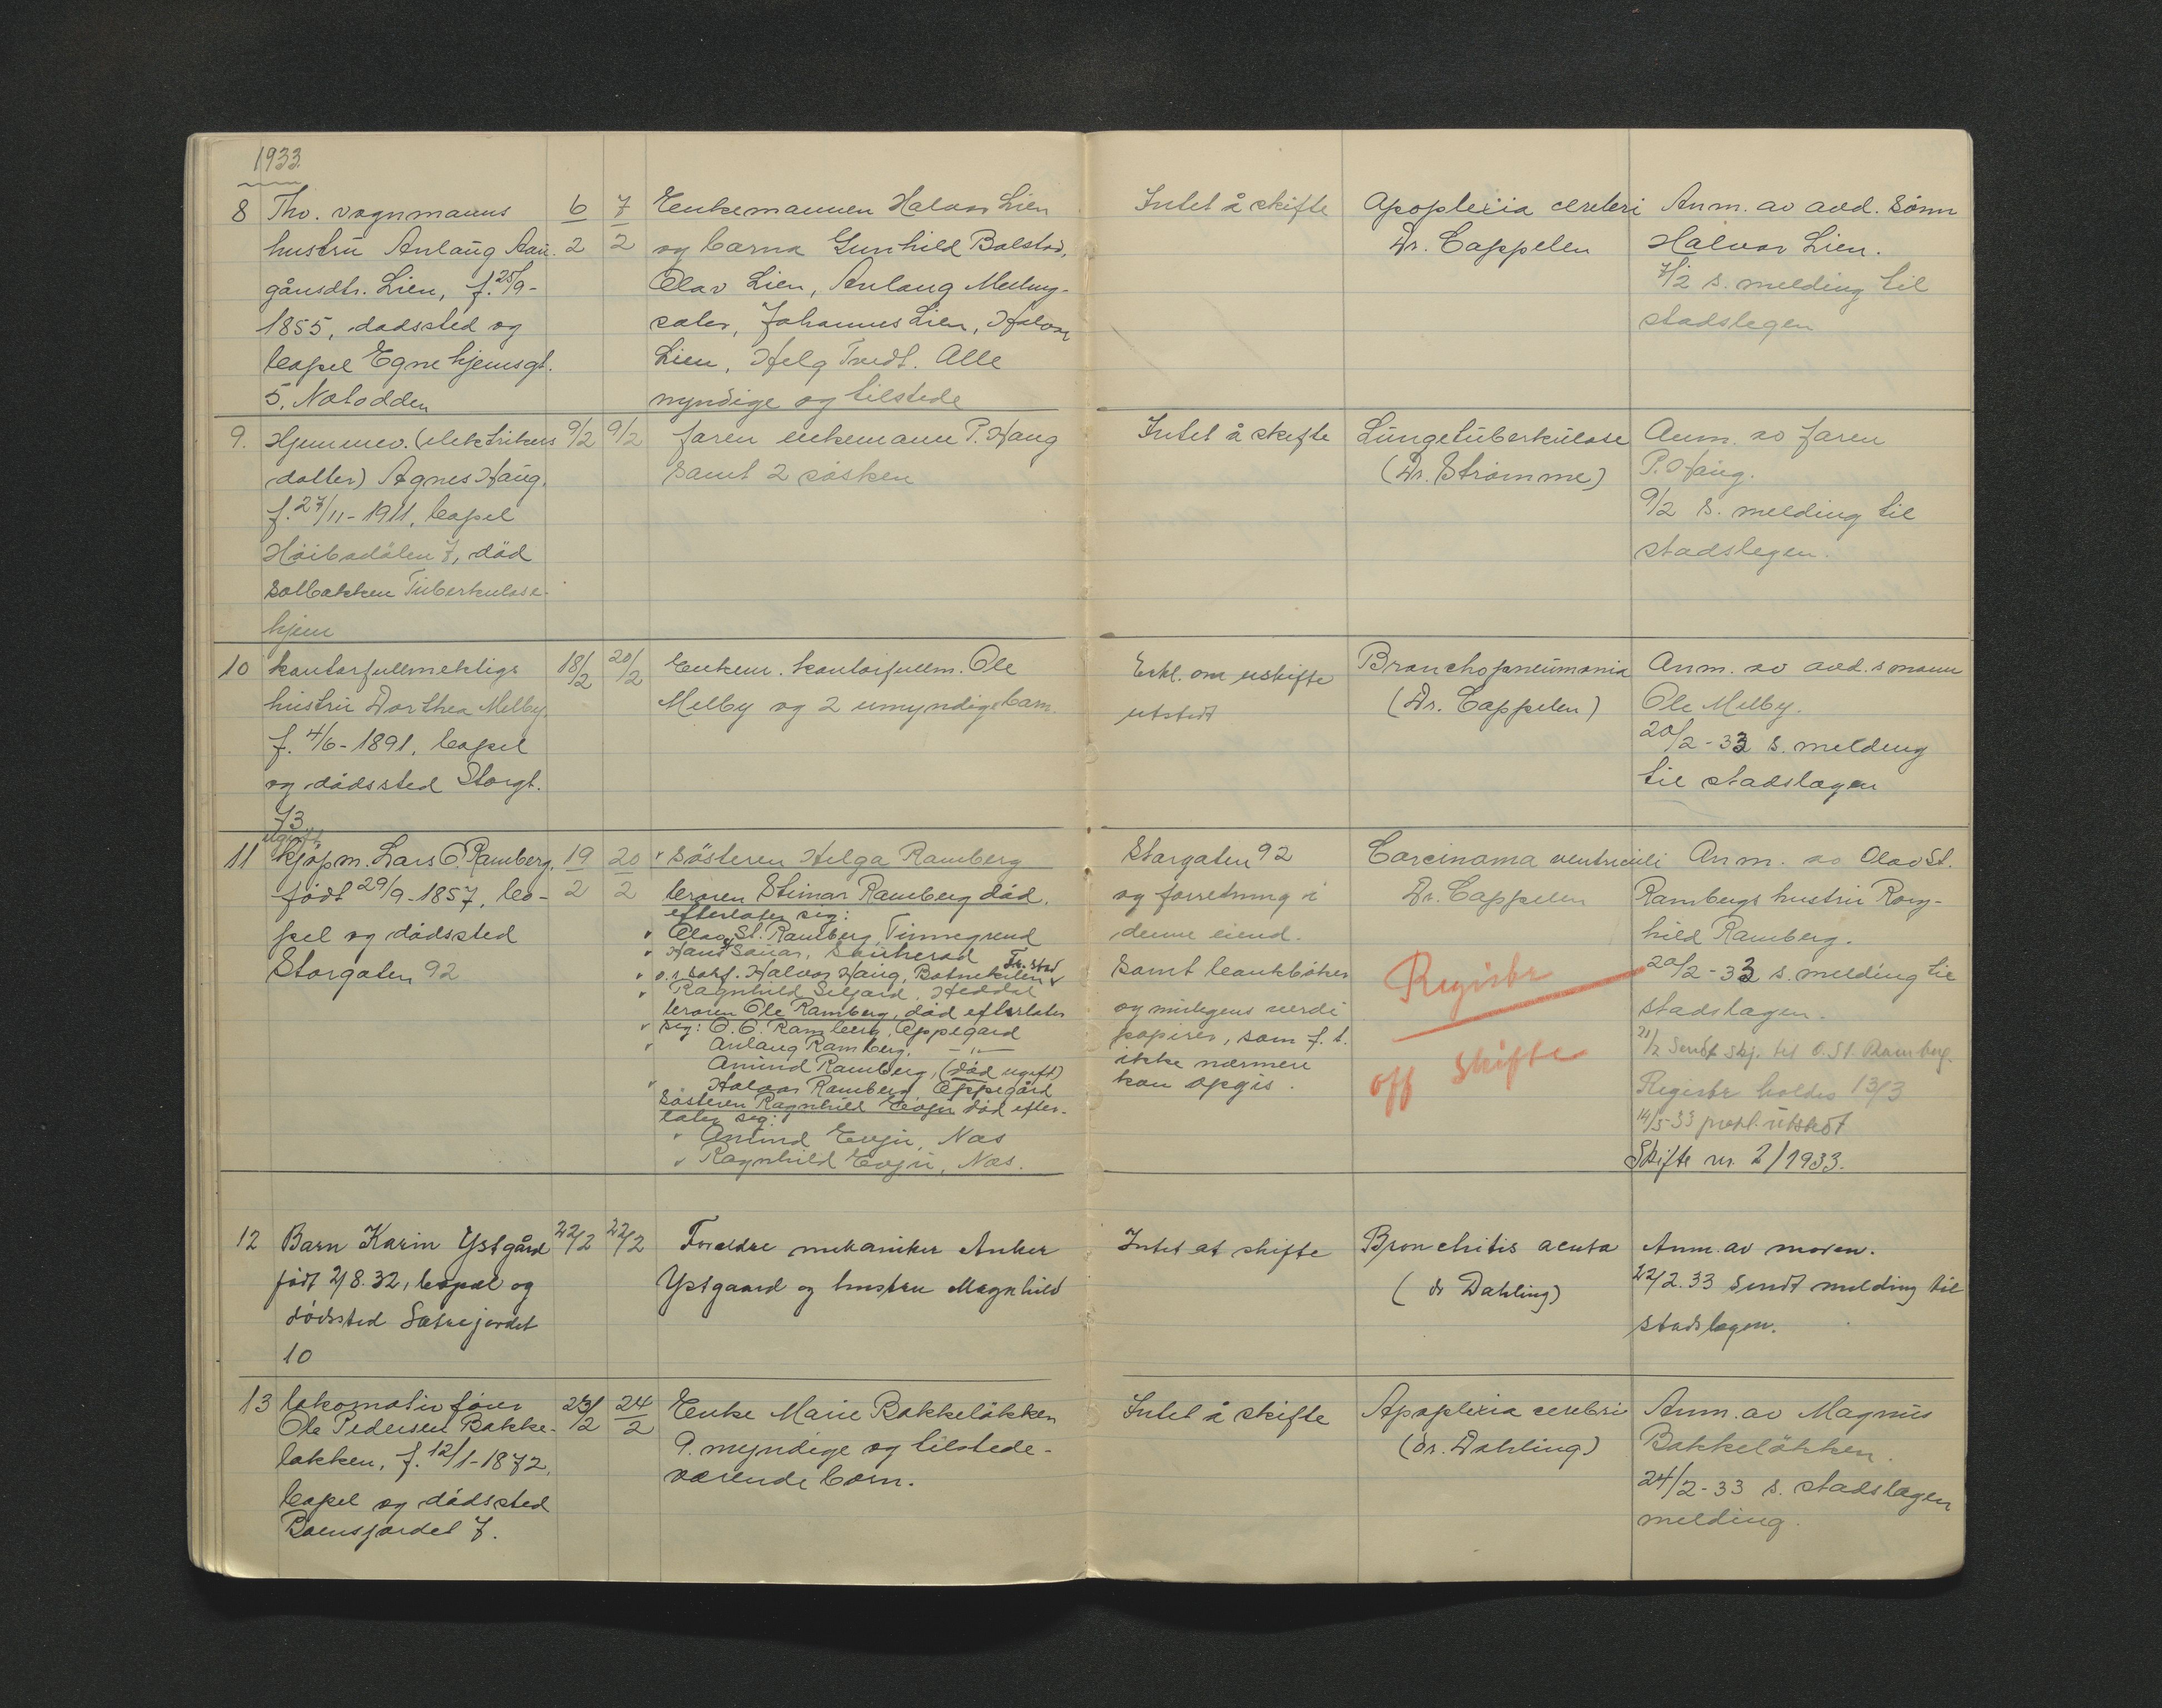 1933
8 Thv. vognmanns
hustru Anlaug Aan-
gånsdtr. Lien, f. 25/9-
1855, dødssted og
bopel Egne hjemsgt.
5. Notodden
6/2 7/2
Enkemannen Halvor Lien
og barna Gunhild Bolstad,
Olav Lien, Anlaug
Johannes Lien, Halvor
Lien, Helg Tvedt. Alle
myndige og tilstede
Intet å skifte
Apoplexia cerebri
Dr. Cappelen
Anm. av avd. sönn
Halvor Lien.
7/2 s. melding til
stadslegen
9. Hjemmev. (elektrikers
datter) Agnes Haug,
f. 27/11-1911, bopel
Höibödalen 7, död
Solbakken Tuberkulose-
hjem
9/2 9/2
faren enkemann P. Haug
samt 2 søsken
Intet å skifte
Lungetuberkulose
(Dr. Strömme)
Anm. av faren
P. Haug.
9/2 s. melding til
stadslegen.
10 kontorfullmektigs
hustru Dorthea Melby,
f. 4/6-1891, bopel
og dödssted Storgt.
73
18/2 20/2
Enkem. kontorfullm. Ole
Melby og 2 umyndige barn.
Erkl. om uskifte
utstedt
Bronchopneumonia
(Dr. Cappelen)
Anm. av avd.s mann
Ole Melby.
20/2-33 s. melding
til stadslægen
ugift
11 Kjøpm. Lars O. Ramberg,
født 29/9-1857, bo-
pel og dödssted
Storgaten 92
19/2 20/2
Sösteren Helga Ramberg
broren Steinar Ramberg död,
efterlater sig:
Olav St. Ramberg, Tinnegrend
Hans Sauar, Sauherad
o.r.sakf. Halvor Haug, Fr.stad
Ragnhild Seljord, Heddal
broren Ole Ramberg, död efterlater
sig: O. O. Ramberg, Oppegård
Anlaug Ramberg, -"-
Amund Ramberg, (död ugift)
Halvor Ramberg Oppegård
Sösteren Ragnhild Evju død efter-
later sig:
Amund Evju, Nes
Ragnhild Evju, Nes.
Storgaten 92
og forretning i
denne eiend.
Samt bankböker
og muligens verdi
papirer, som f. t.
ikke nærmere
kan opgis.
Carcinoma ventriculi
Dr. Cappelen
Registr
off skifte
Anm. av Olav St.
Rambergs hustru Rag-
hild Ramberg.
20/2-33 s. melding til
stadslægen.
21/2 Sendt skj. til O. St. Ramberg.
Registr holdes 13/3
14/5-33 utstedt
Skifte nr. 2/1933.
12 Barn Karin Ystgård
født 2/8.32, bopæl og
dödssted Sætrejordet
10
22/2 22/2
Foreldre mekaniker Anker
Ystgaard og hustru Magnhild
Intet at skifte
Bronchitis acuta
(dr Dahling)
Anm. av moren.
22/2.33 sendt melding til
stadslægen.
13 lokomotivförer
Ole Pedersen Bakke-
løkken, f. 12/1-1872,
bopel og dödssted
7.
23/2 24/2
Enke Marie Bakkelökken
9. myndige og tilstede-
værende barn.
Intet å skifte
Apoplexia cerebri
(dr. Dahling)
Anm. av Magnus
Bakkelökken.
24/2-33 s. stadslægen
melding.